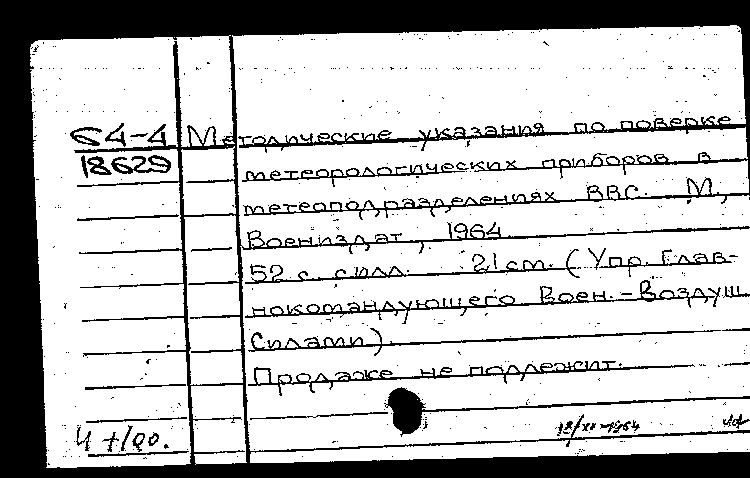 64-4 Методические указания по поверке
18629 метеорологических приборов в
метеоподразделениях ВВС. М.,
Воениздат, 1964.
52 с. силл. 21 см. (Упр. Глав-
нокомандующего Воен.-Воздуш
Силами).
Продаже не подлежит.
12/XI-1964